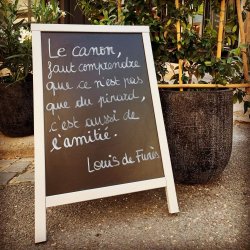 Le canon,
faut comprendre
que ce n'est pas
que du pinard,
c'est aussi de
l'amitié.
Louis de Funès